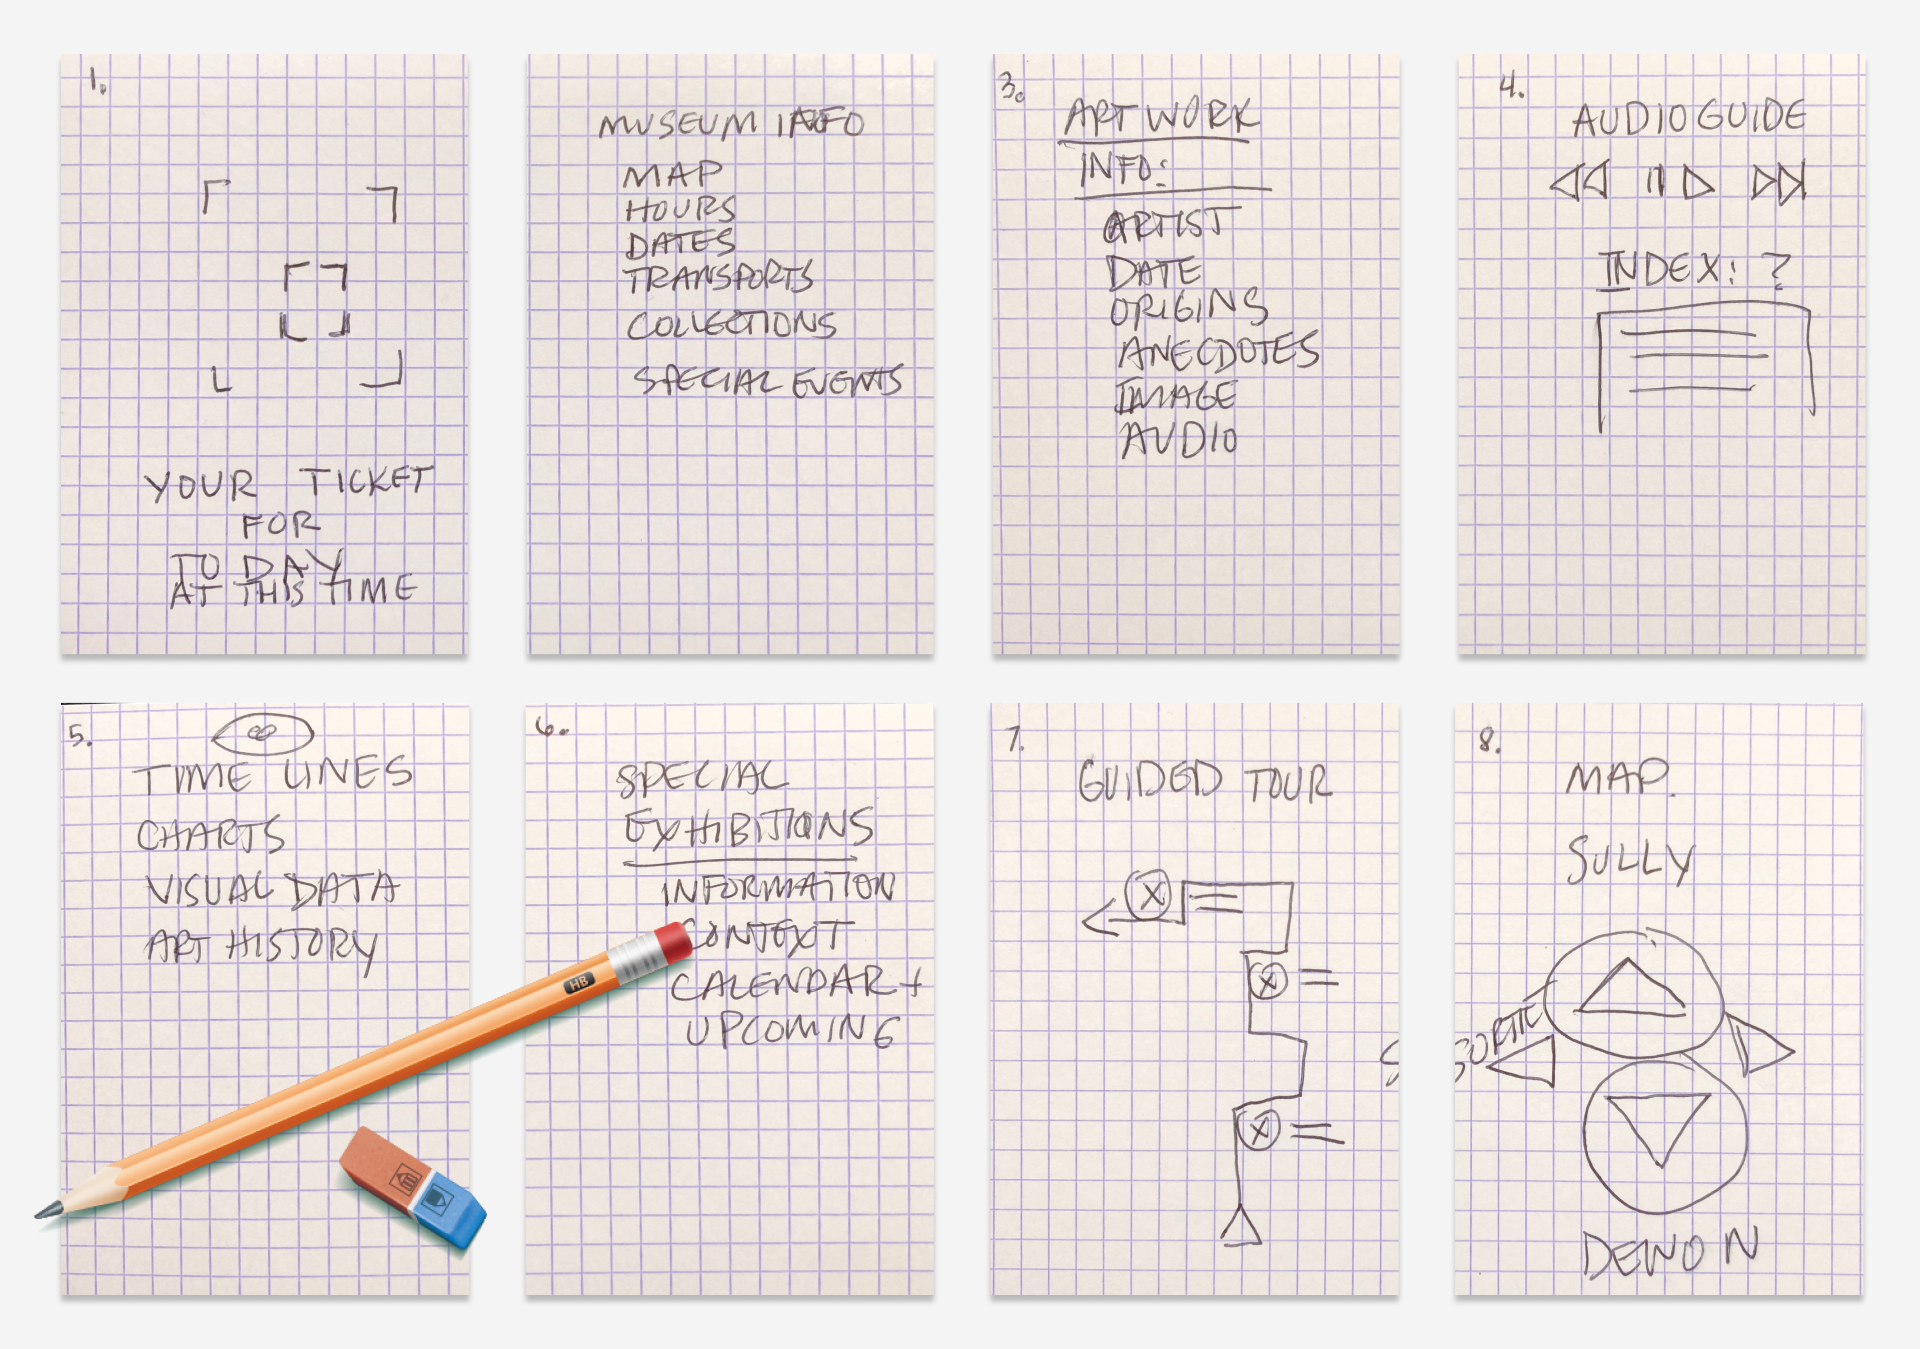 1.
YOUR TICKET
FOR
TODAY
AT THIS TIME
MUSEUM INFO
MAP
HOURS
DATES
TRANSPORTS
COLLECTIONS
SPECIAL EVENTS
3.
ARTWORK
INFO:
ARTIST
DATE
ORIGINS
ANECDOTES
IMAGE
AUDIO
4.
AUDIOGUIDE
INDEX: ?
5.
TIME LINES
CHARTS
VISUAL DATA
ART HISTORY
6.
SPECIAL
EXHIBITIONS
INFORMATION
CONTEXT
CALENDAR +
UPCOMING
HB
7.
GUIDED TOUR
X
X
X
8.
MAP.
SULLY
SORTIE
DENON